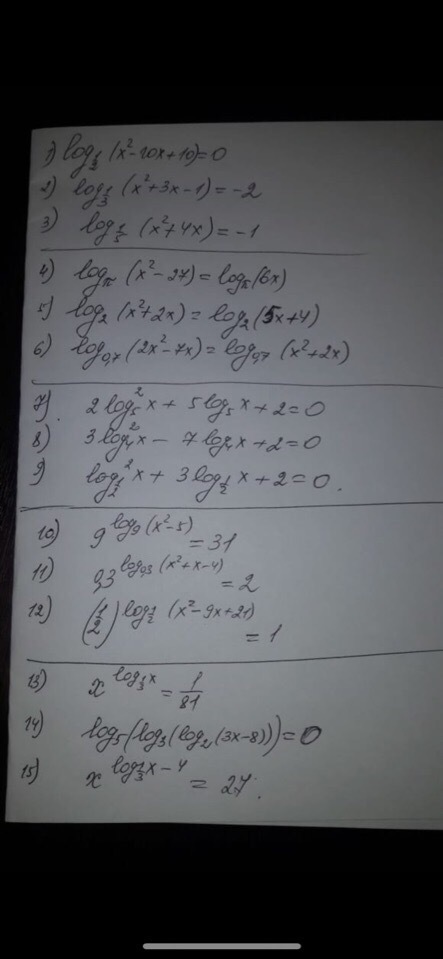 1) log_{1/2} (x²-10x+10)=0
2) log_{1/3} (x²+3x-1)=-2
3) log_{1/5} (x²+4x)=-1
4) log_π (x²-27)=log_π(6x)
5) log_2 (x²+2x)=log_2(5x+4)
6) log_{0,7} (2x²-7x)=log_{0,7} (x²+2x)
7) 2log_5²x+5log_5x+2=0
8) 3log_4²x-7log_4x+2=0
9) log_{1/2}²x+3log_{1/2}x+2=0.
10) 9^{log_9(x²-5)}=31
11) 0,3^{log_{0,3}(x²+x-4)}=2
12) (1/2)^{log_{1/2}(x²-9x+21)}=1
13) x^{log_{1/3}x}=1/81
14) log_5(log_3(log_2(3x-8)))=0
15) x^{log_{1/3}x-4}=27.